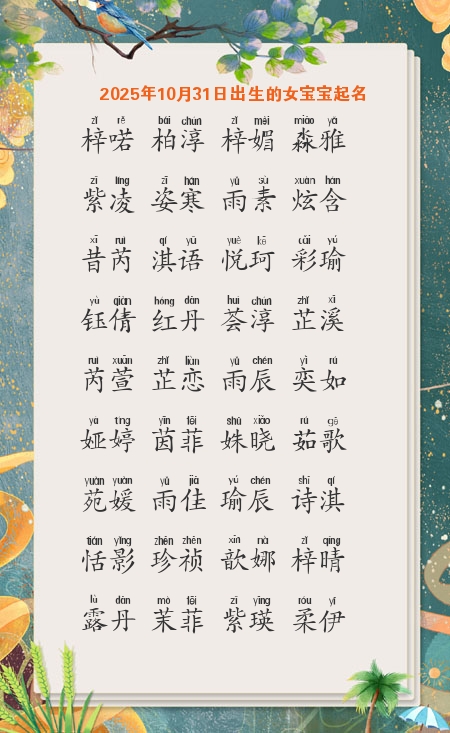 2025年10月31日出生的女宝宝起名
zǐ rě bǎi chún zǐ mèi miǎo yǎ
梓喏 柏淳 梓媚 淼雅
zǐ líng zī hán yǔ sù xuàn hán
紫凌 姿寒 雨素 炫含
xī ruì qí yǔ yuè kē cǎi yú
昔芮 淇语 悦珂 彩瑜
yù qiàn hóng dān huì chún zhǐ xī
钰倩 红丹 荟淳 芷溪
ruì xuān zhǐ liàn yǔ chén yì rú
芮萱 芷恋 雨辰 奕如
yà tíng yīn fēi shū xiǎo rú gē
娅婷 茵菲 姝晓 茹歌
yuàn yuàn yǔ jiā yú chén shī qí
苑媛 雨佳 瑜辰 诗淇
tián yǐng zhēn zhēn xīn nà zǐ qíng
恬影 珍祯 歆娜 梓晴
lù dān mò fēi zǐ yīng róu yī
露丹 茉菲 紫瑛 柔伊